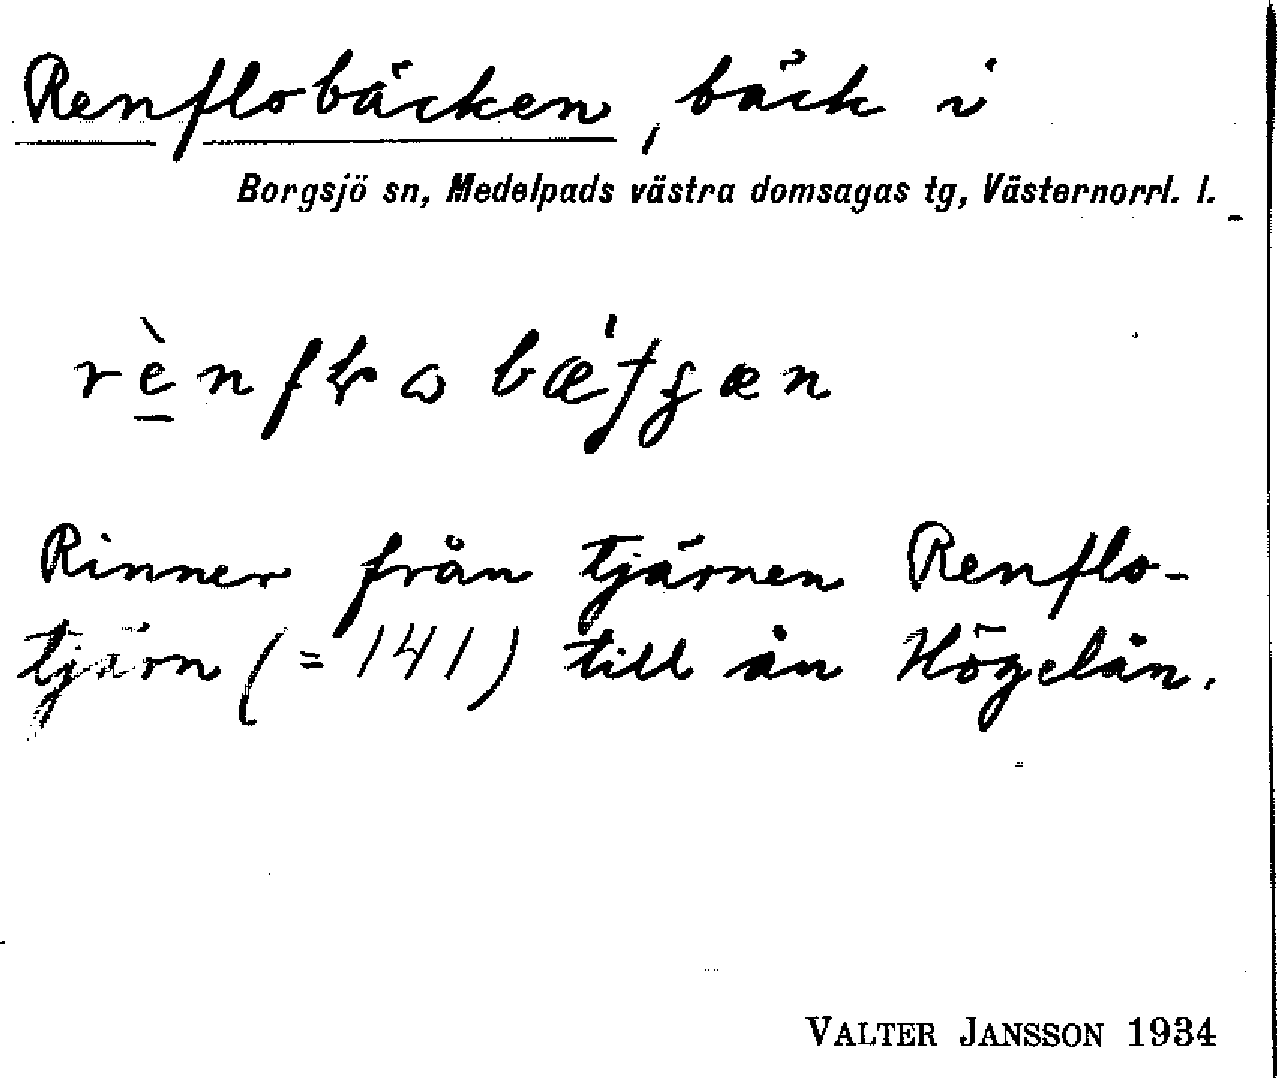 Renflobäcken, bäck i
Borgsjö sn, Medelpads västra domsagas tg, Västernorrl. l.
Rinner från tjärnen Renflo-
tjärn (= 141) till ån Högelån.
VALTER JANSSON 1934